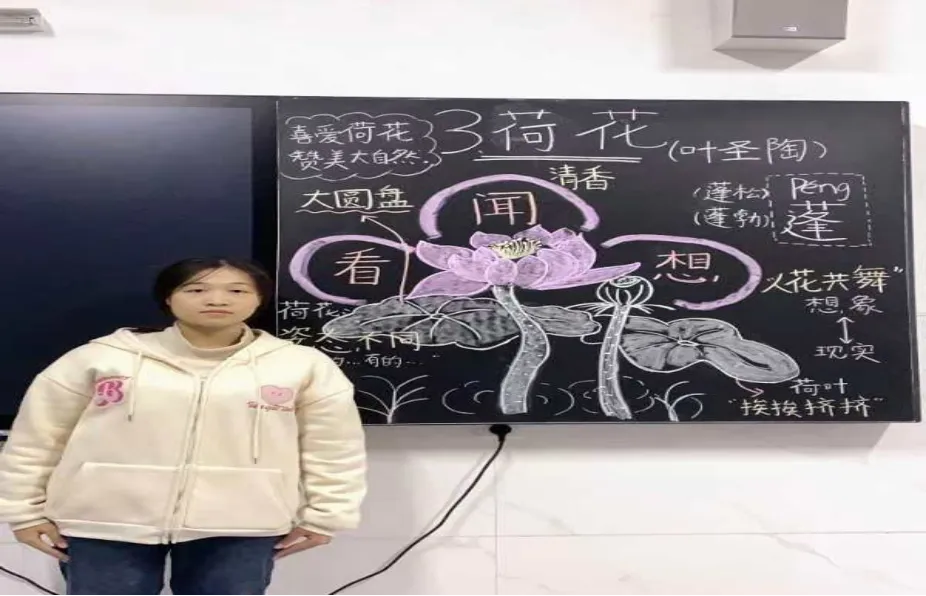 喜爱荷花
赞美大自然。
3.荷花
(叶圣陶)
大圆盘
清香
闻
看
想
(蓬松)
(蓬勃)
Péng
蓬
"人花共舞"
想象
现实
荷花
姿态不同
"有的…有的…"
荷叶
"挨挨挤挤"
B